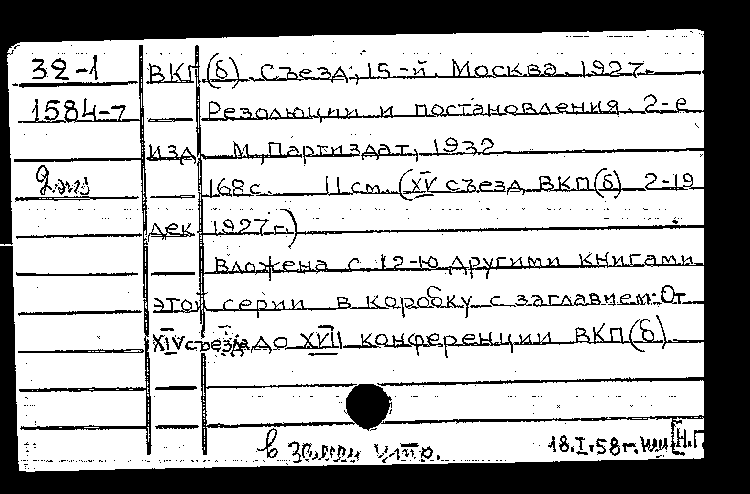 32-1 ВКП(б). Съезд, 15-й. Москва. 1927.
1584-7 Резолюции и постановления. 2-е
изд. М., Партиздат, 1932
2 экз 168 с. 11 см. (XV съезд ВКП(б) 2-19
дек 1927 г.)
Вложена с 12-ю другими книгами
этой серии в коробку с заглавием: От
XIV съезда до XVII конференции ВКП(б).
в
18.I.58 г. [Н.Г.